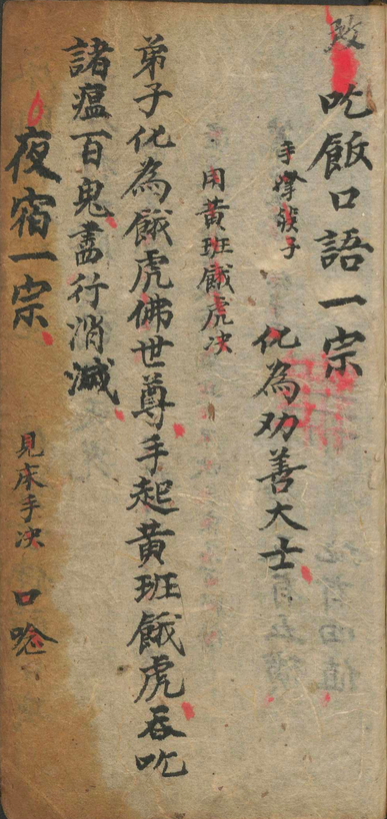 吃飯口語一宗
手拿筷子
化為劝善大士
用黄班餓虎决
弟子化為餓虎佛世尊手起黄班餓虎吞吃
諸瘟百鬼盡行消滅
夜宿一宗
見床手决 口唸